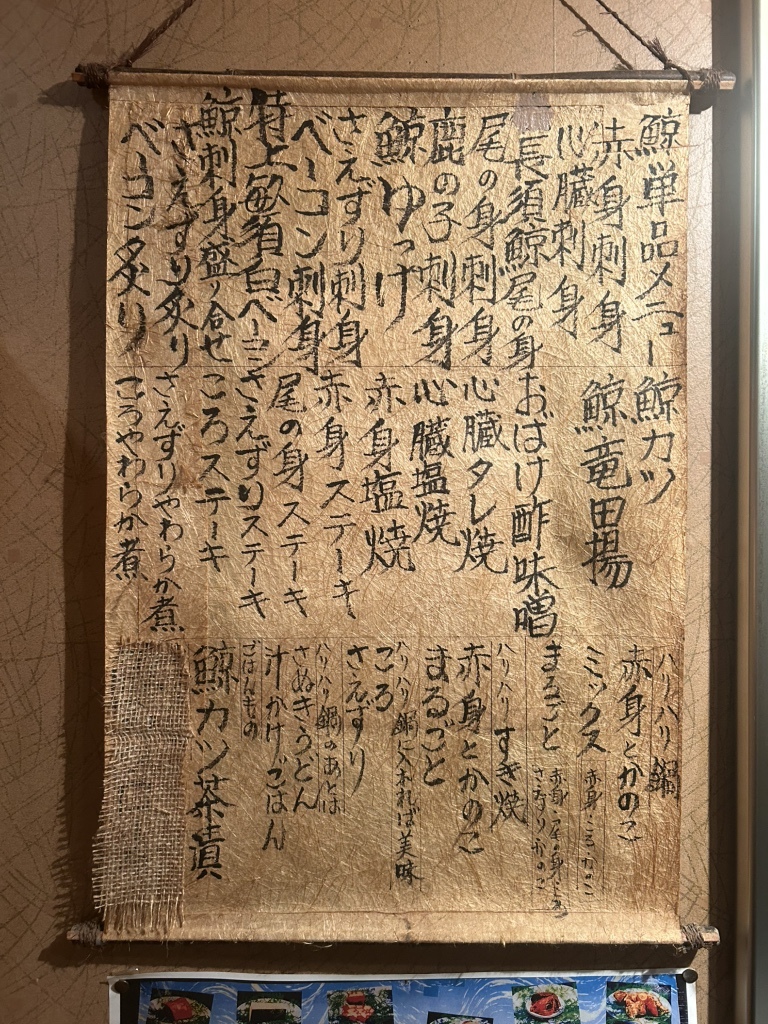 鯨単品メニュー
赤身刺身
心臓刺身
長須鯨尾の身
尾の身刺身
鹿の子刺身
鯨ゆっけ
さえずり刺身
ベーコン刺身
特上畝須白ベーコン
鯨刺身盛り合せ
さえずり炙り
ベーコン炙り
鯨カツ
鯨竜田揚
おばけ酢味噌
心臓タレ焼
心臓塩焼
赤身塩焼
赤身ステーキ
尾の身ステーキ
さえずりステーキ
ころステーキ
さえずりやわらか煮
ころやわらか煮
ハリハリ鍋
赤身とかのこ
ミックス 赤身・ころ・かのこ
まるごと 赤身・尾の身・ころ
さえずり・かのこ
ハリハリすき焼
赤身とかのこ
まるごと
ハリハリ鍋に入れれば美味
ころ
さえずり
ハリハリ鍋のあとは
さぬきうどん
汁かけごはん
ごはんもの
鯨カツ茶漬